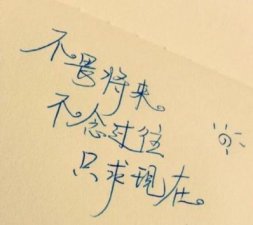 不畏将来。
不念过往
只求现在。